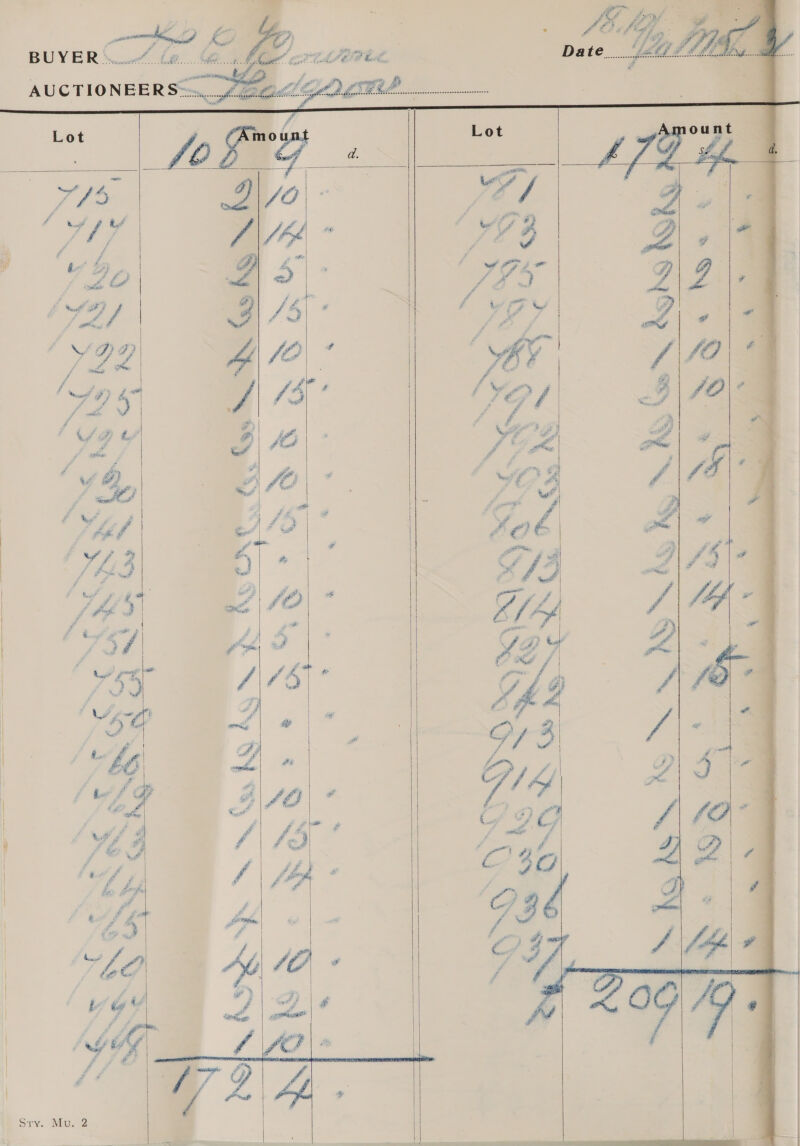 BUYER H. C. Bourne
Date 18.19/20 Mch 31
AUCTIONEERS Hodgsons
Lot Amount d.
108 9
715 2 10 -
717 1 14 -
720 2 5 -
721 3 15 -
722 4 10 -
725 1 15 -
727 3 10 -
730 3 10 -
741 3 15 -
743 5 - -
745 2 10 -
751 4 5 -
755 1 15 -
759 2 - -
760 2 - -
762 3 10 -
763 1 15 -
764 1 14 -
765 4 - -
769 4 10 -
777 2 2 -
778 1 10 -
172 4 -
Lot Amount s. d.
£ 172 4
781 2 - -
783 2 - -
785 2 2 -
787 2 - -
788 1 10 -
791 3 10 -
792 2 - -
793 1 18 -
806 2 - -
813 2 15 -
814 1 14 -
827 2 - -
842 1 15 -
913 1 - -
914 2 5 -
929 1 10 -
930 2 2 -
936 2 - -
937 1 14 -
£ 209 19 -
Sty. Mu. 2